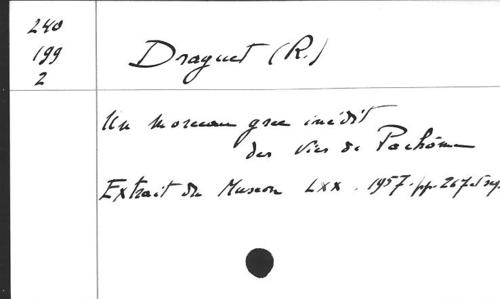 240
199
2
Draguet (R.)
Un morceau grec inédit
des Vies de Pachôme
Extrait du Museon LXX. 1957. pp. 267 et sq